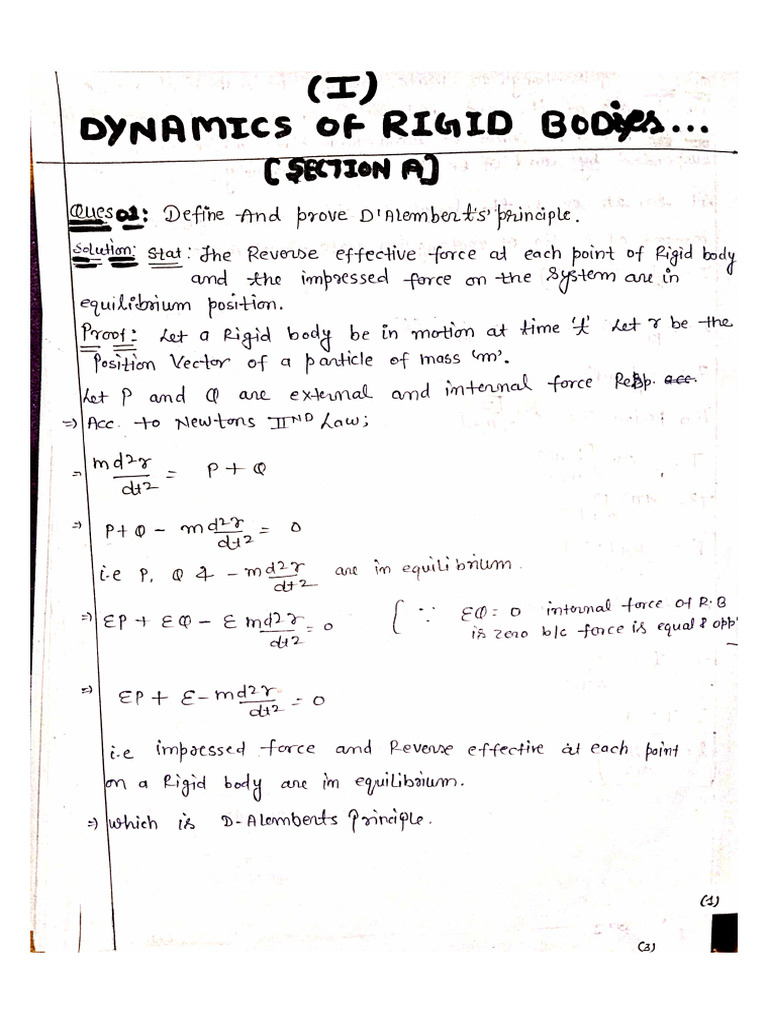 (I)
DYNAMICS OF RIGID BODies...
[SECTION A]
Ques 01: Define And prove D'Alembert's' principle.
Solution: Stat: The Reverse effective force at each point of Rigid body
and the impressed force on the system are in
equilibrium position.
Proof: Let a Rigid body be in motion at time 't' Let r be the
Position Vector of a particle of mass 'm'.
Let P and Q are external and internal force Resp. acc.
=> Acc. to Newtons IIND Law;
=> md²r/dt² = P + Q
=> P+Q - md²r/dt² = 0
i.e P, Q & - md²r/dt² are in equilibrium.
=> ƐP + ƐQ - Ɛ md²r/dt² = 0 { ∵ ƐQ = 0 internal force of R.B
is zero b/c force is equal & opp
=> ƐP + Ɛ - md²r/dt² = 0
i.e impressed force and Reverse effective at each point
on a Rigid body are in equilibrium.
=> which is D-Alemberts Principle.
(1)
(3)